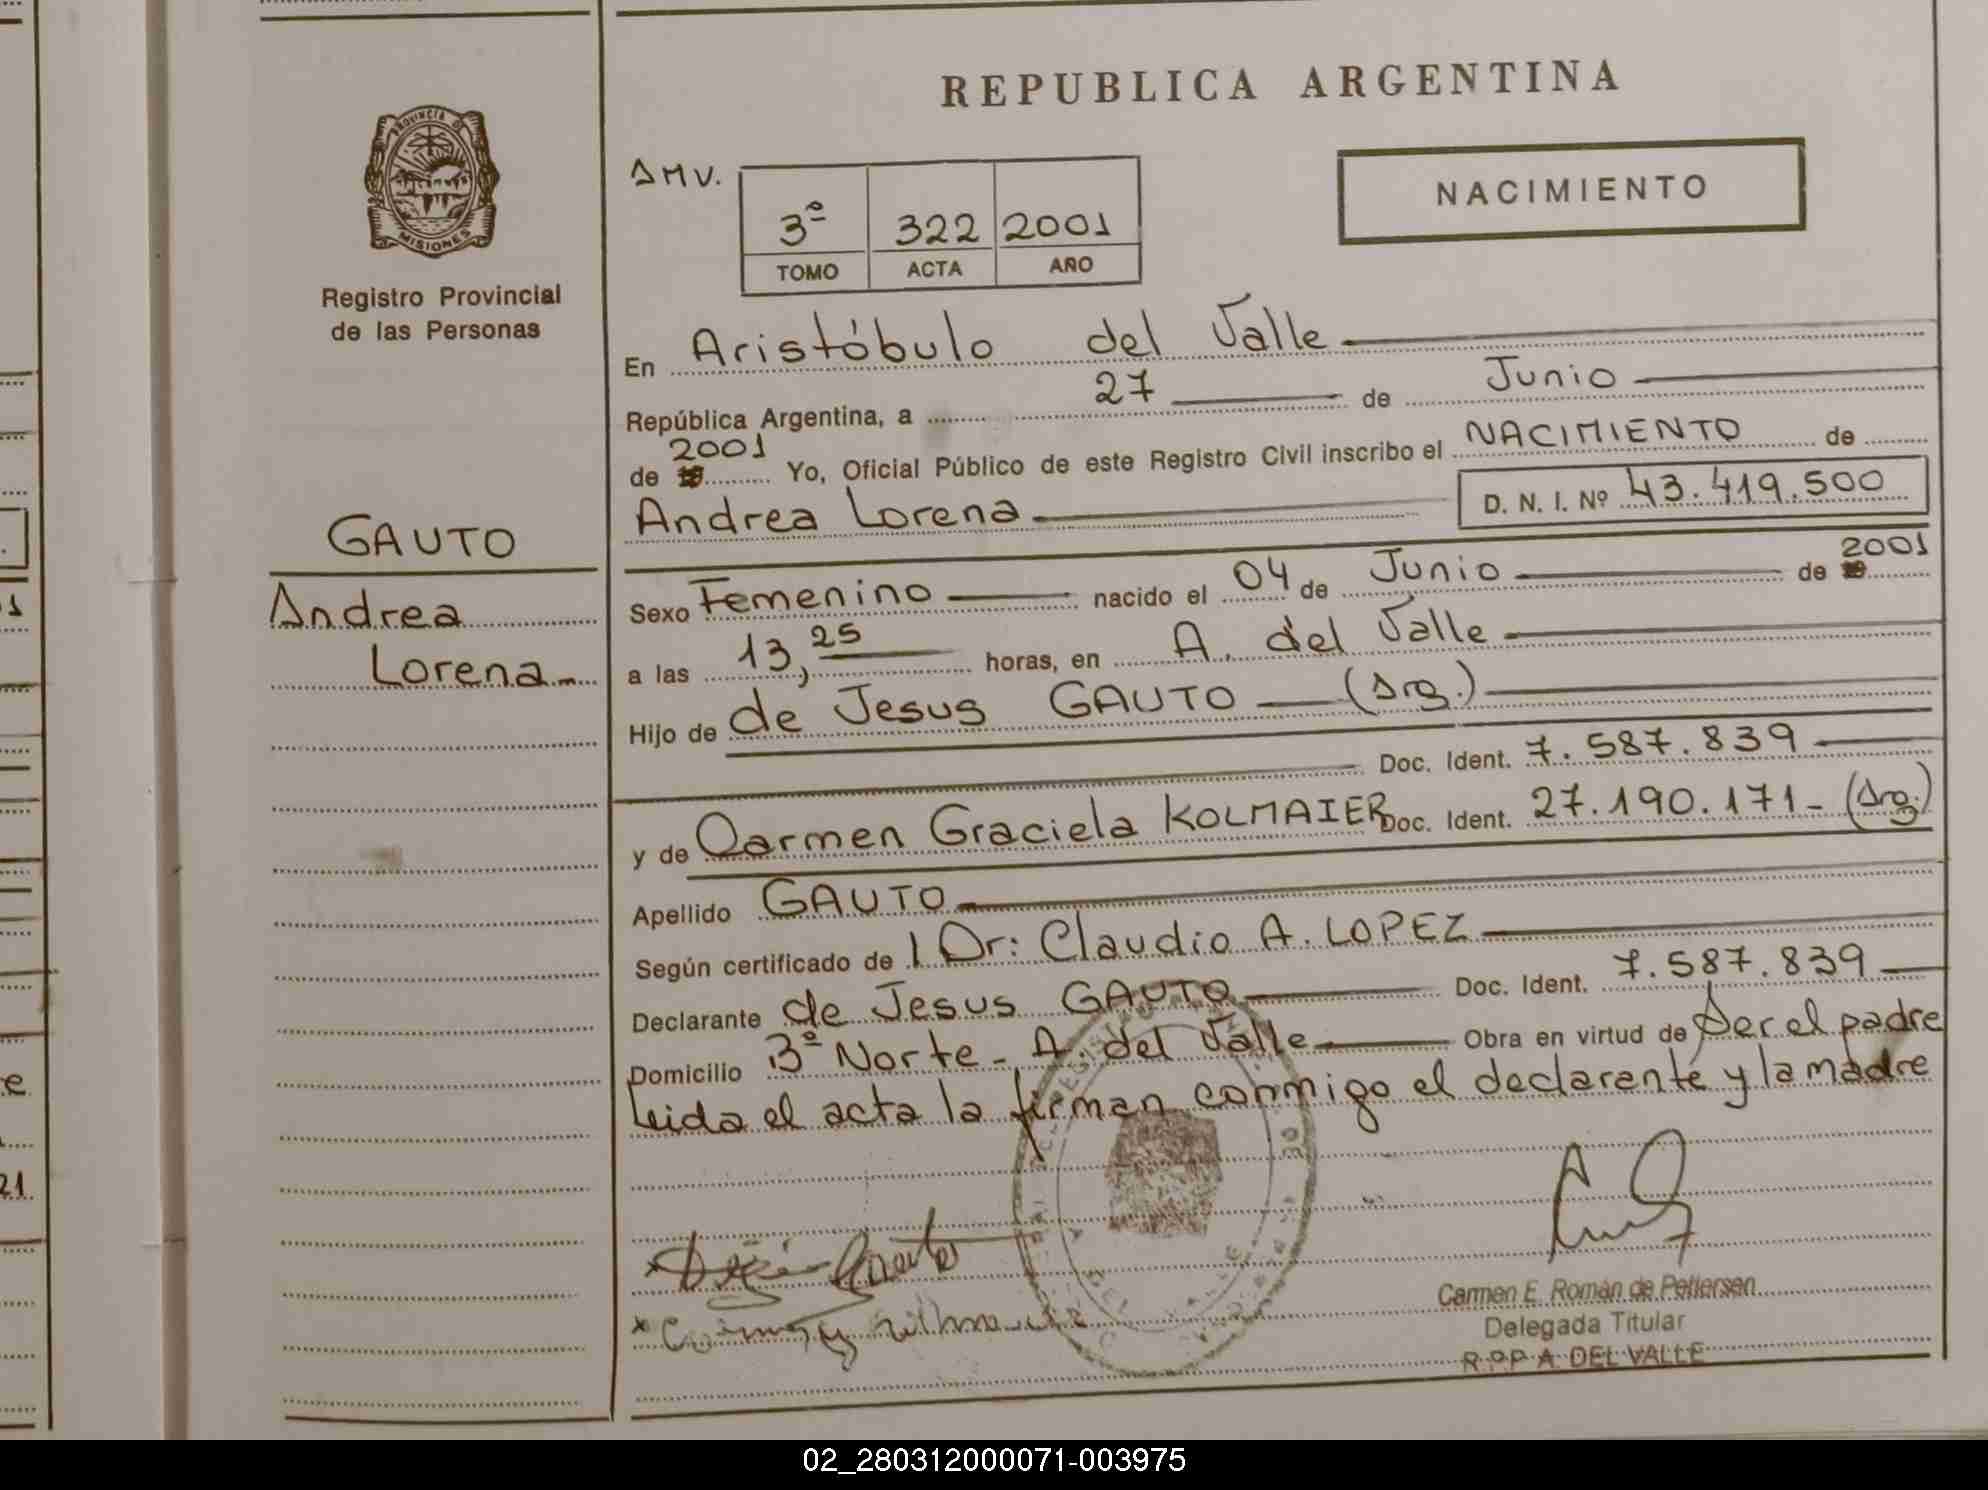 REPUBLICA ARGENTINA
PROVINCIA DE
MISIONES
Registro Provincial
de las Personas
AMV.
3º 322 2001
TOMO ACTA AÑO
NACIMIENTO
En Aristóbulo del Valle
República Argentina, a 27 de Junio
de 2001 Yo, Oficial Público de este Registro Civil inscribo el NACIMIENTO de
Andrea Lorena D. N. I. Nº 43.419.500
GAUTO
Andrea
Lorena
Sexo Femenino nacido el 04 de Junio de 2001
a las 13,25 horas, en A. del Valle
Hijo de de Jesus GAUTO (Arg.)
Doc. Ident. 7.587.839
y de Carmen Graciela KOLMAIER Doc. Ident. 27.190.171 (Arg.)
Apellido GAUTO
Según certificado del Dr: Claudio A. LOPEZ
Declarante de Jesus GAUTO Doc. Ident. 7.587.839
Domicilio 3º Norte - A. del Valle Obra en virtud de Ser el padre
Leida el acta la firman conmigo el declarante y la madre
Carmen E. Román de Pettersen
Delegada Titular
R.P.P. A. DEL VALLE
02_280312000071-003975